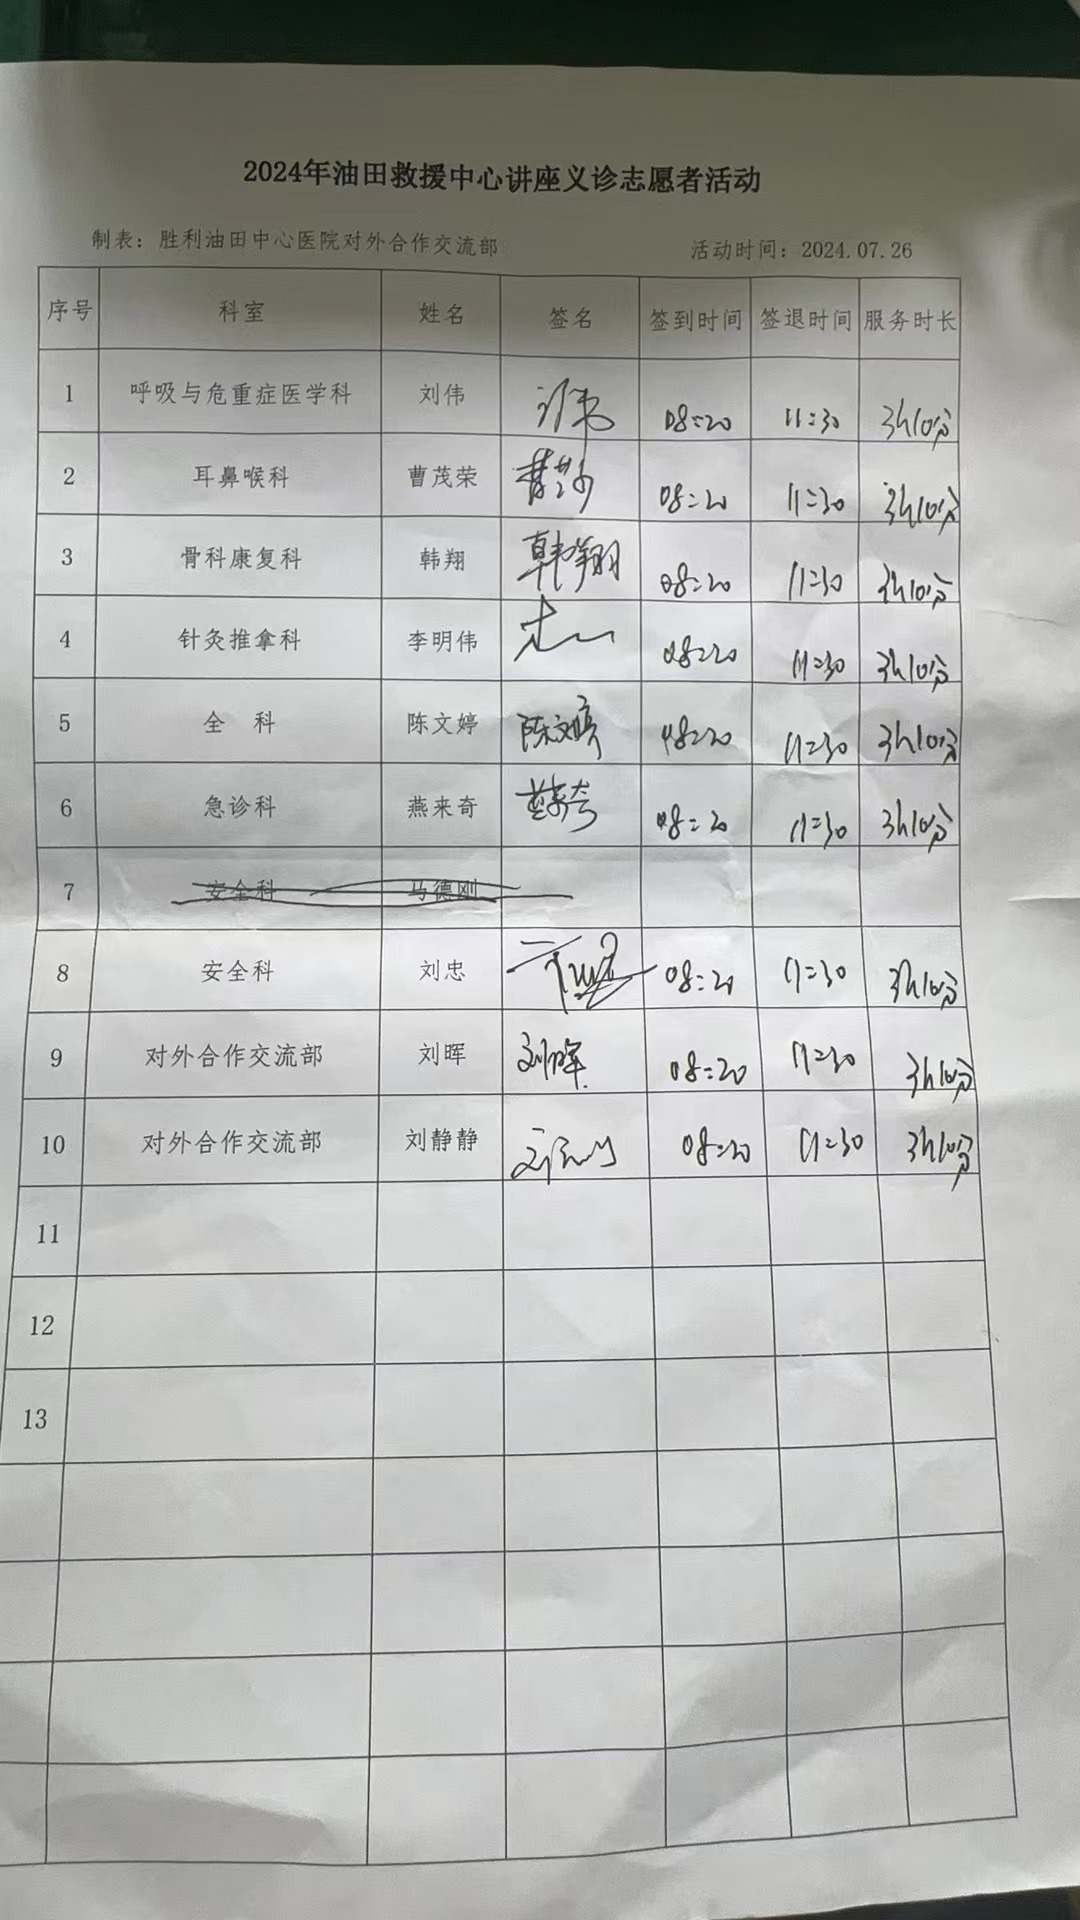 2024年油田救援中心讲座义诊志愿者活动
制表：胜利油田中心医院对外合作交流部 活动时间：2024.07.26
序号 科室 姓名 签名 签到时间 签退时间 服务时长
1 呼吸与危重症医学科 刘伟 08:20 11:30 3h10分
2 耳鼻喉科 曹茂荣 08:20 11:30 3h10分
3 骨科康复科 韩翔 韩翔 08:20 11:30 3h10分
4 针灸推拿科 李明伟 08:20 11:30 3h10分
5 全 科 陈文婷 陈文婷 08:20 11:30 3h10分
6 急诊科 燕来奇 08:20 11:30 3h10分
7 安全科 马德刚
8 安全科 刘忠 08:20 11:30 3h10分
9 对外合作交流部 刘晖 刘晖 08:20 11:30 3h10分
10 对外合作交流部 刘静静 08:20 11:30 3h10分
11
12
13